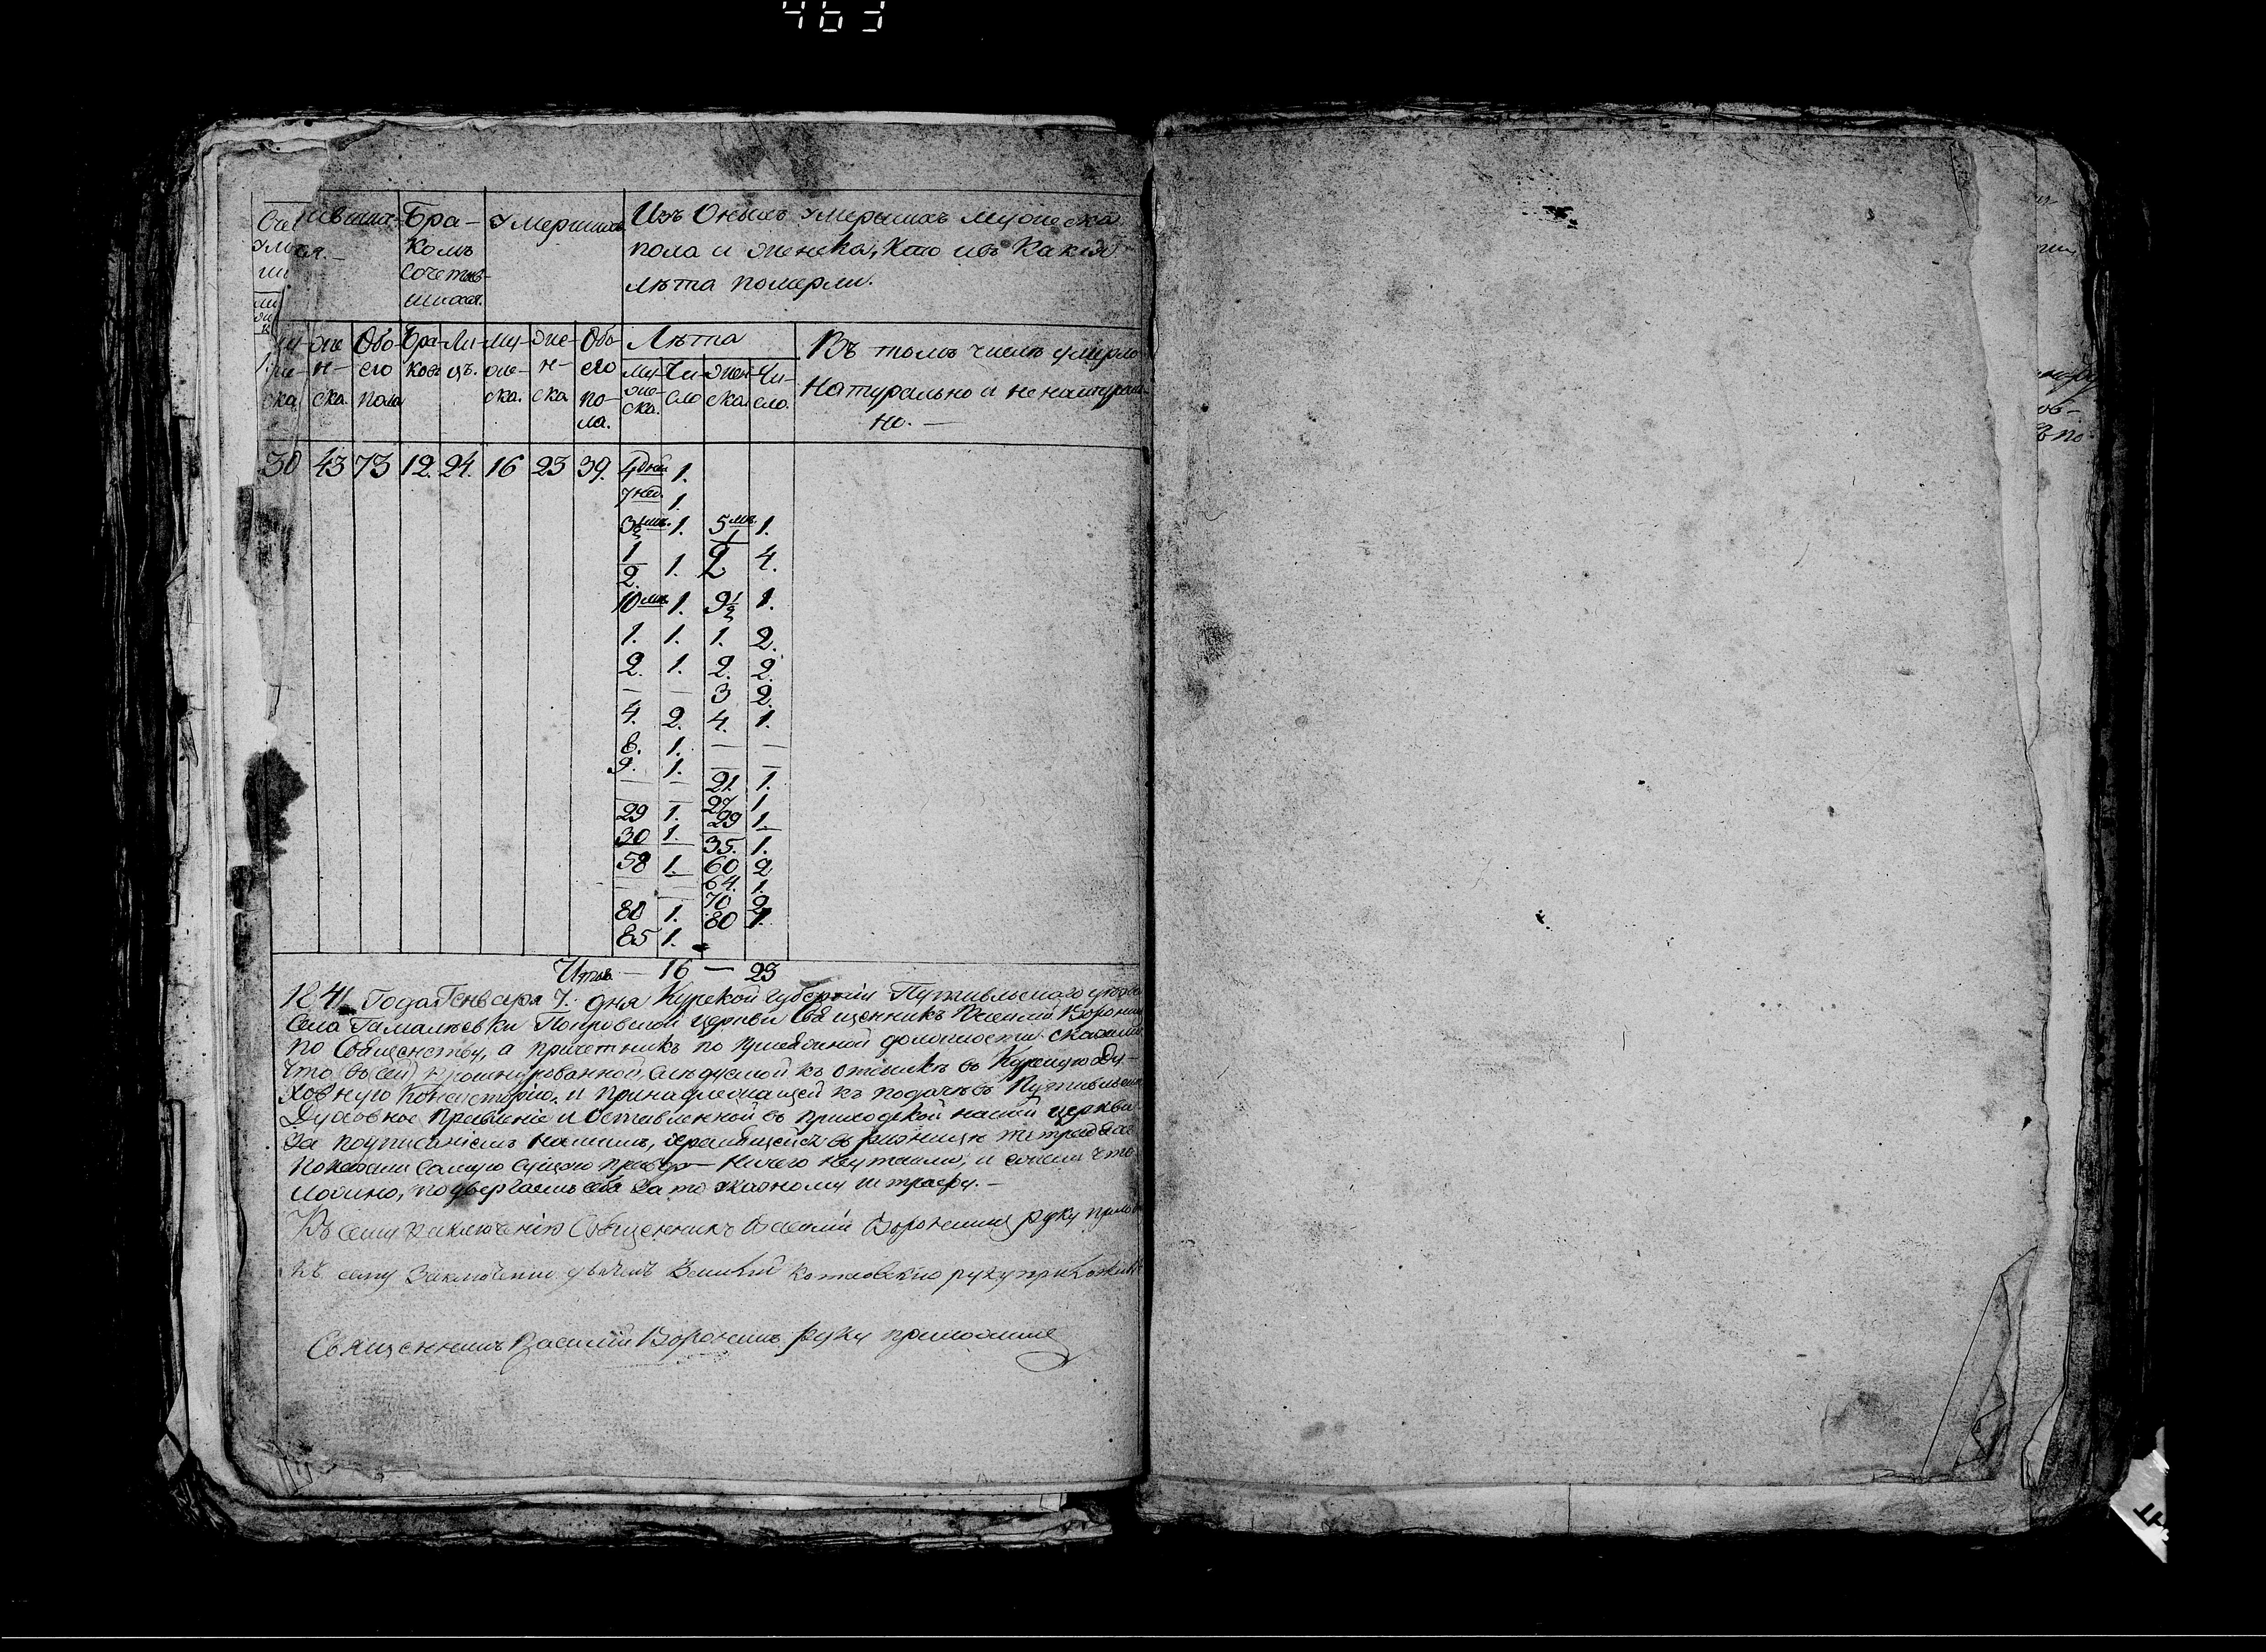 463
родившихся. Бракомъ сочетавшихся. Умершихъ Изъ Оныхъ умершихъ мужеска
пола и женска, кто въ какія
лѣта померли.
мужеска женска Обоего пола Браковъ Лицъ. мужеска. женска Обоего пола. Лѣта Въ томъ числѣ умерло
мужеска. Число женска. Число. натурально и ненатурально. —
30 43 73 12. 24. 16 23 39. 4 дней 1.
7 нед. 1.
3½ мц. 1. 5 мц. 1.
1/2. 1. 1/2 4.
10 мц. 1. 9½ 1.
1. 1. 1. 2.
2. 1. 2. 2.
— — 3 2.
4. 2. 4. 1.
8. 1. — —
9. 1. — —
— — 21. 1.
— — 27 1
29 1. 29 1.
30 1. —
— 35. 1.
58 1. 60 2
— — 64. 1.
— 70 2
80 1. 80 1.
85 1.
Итого — 16 — 23
1841 Года Генваря 7. дня Курской Губерніи Путивльского уѣзда
Села Гамалѣевки Покровской церкви Священникъ Василій Воронинъ
по Священству, а причетникъ по присяжной должности сказали
что въ сей) слѣдуемой къ отсылкѣ въ Курскую Ду-
ховную Консисторію, и принадлежащей къ подачѣ въ Путивльское
Духовное Правленіе и оставленной въ приходской нашей церкви
за подписаніемъ нашимъ, хранящейся въ ризницѣ тетрадяхъ
показали самую сущую правду — ничего неутаили, и если что
ложно, подвергаемъ себя за то законному штрафу. —
Къ сему заключенію Священникъ Василій Воронинъ руку прило
Къ сему заключенію руку приложилъ
Священникъ Василій Воронинъ руку приложилъ